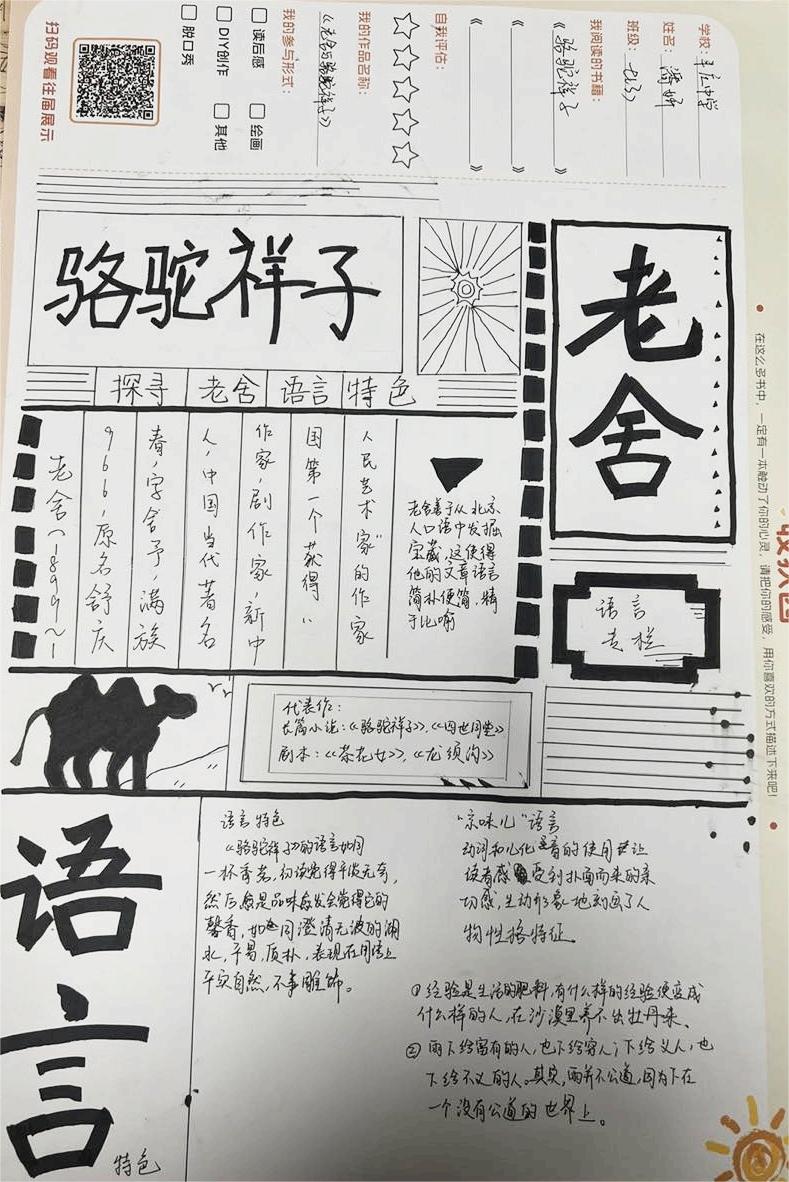 学校：丰庄中学
姓名：潘妍
班级：七(3)
我阅读的书籍：
《骆驼祥子》
《 》
《 》
自我评估：
我的作品名称：
《老舍与骆驼祥子》
我的参与形式：
读后感 绘画
DIY创作 其他
脱口秀
扫码观看往届展示
在这么多书中，一定有一本触动了你的心灵，请把你的感受，用你喜欢的方式描述下来吧！
骆驼祥子
老舍
探寻 老舍 语言 特色
老舍(1899~1
966),原名舒庆
春,字舍予,满族
人,中国当代著名
作家,剧作家,新中
国第一个获得“
人民艺术家”的作家
老舍善于从北京
人口语中发掘
宝藏,这使得
他的文章语言
简朴便简,精
于比喻
语言
专栏
代表作:
长篇小说:《骆驼祥子》,《四世同堂》
剧本:《茶花女》,《龙须沟》
语言
特色
语言特色
《骆驼祥子》的语言如同
一杯香茗,初读觉得平淡无奇,
然后愈是品味愈发会觉得它的
馨香,如同澄清无波的湖
水,平易,质朴,表现在用语上
平实自然,不事雕饰。
“京味儿”语言
动词和儿化音的使用让
读者感受到扑面而来的亲
切感,生动形象地刻画了人
物性格特征。
①经验是生活的肥料,有什么样的经验便变成
什么样的人,在沙漠里养不出牡丹来。
②雨下给富有的人,也下给穷人;下给义人,也
下给不义的人。其实,雨并不公道,因为下在
一个没有公道的世界上。